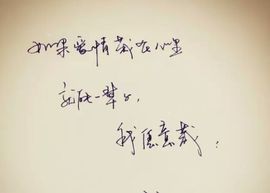 如果爱情藏在心里
就能一辈子，
我愿意藏，